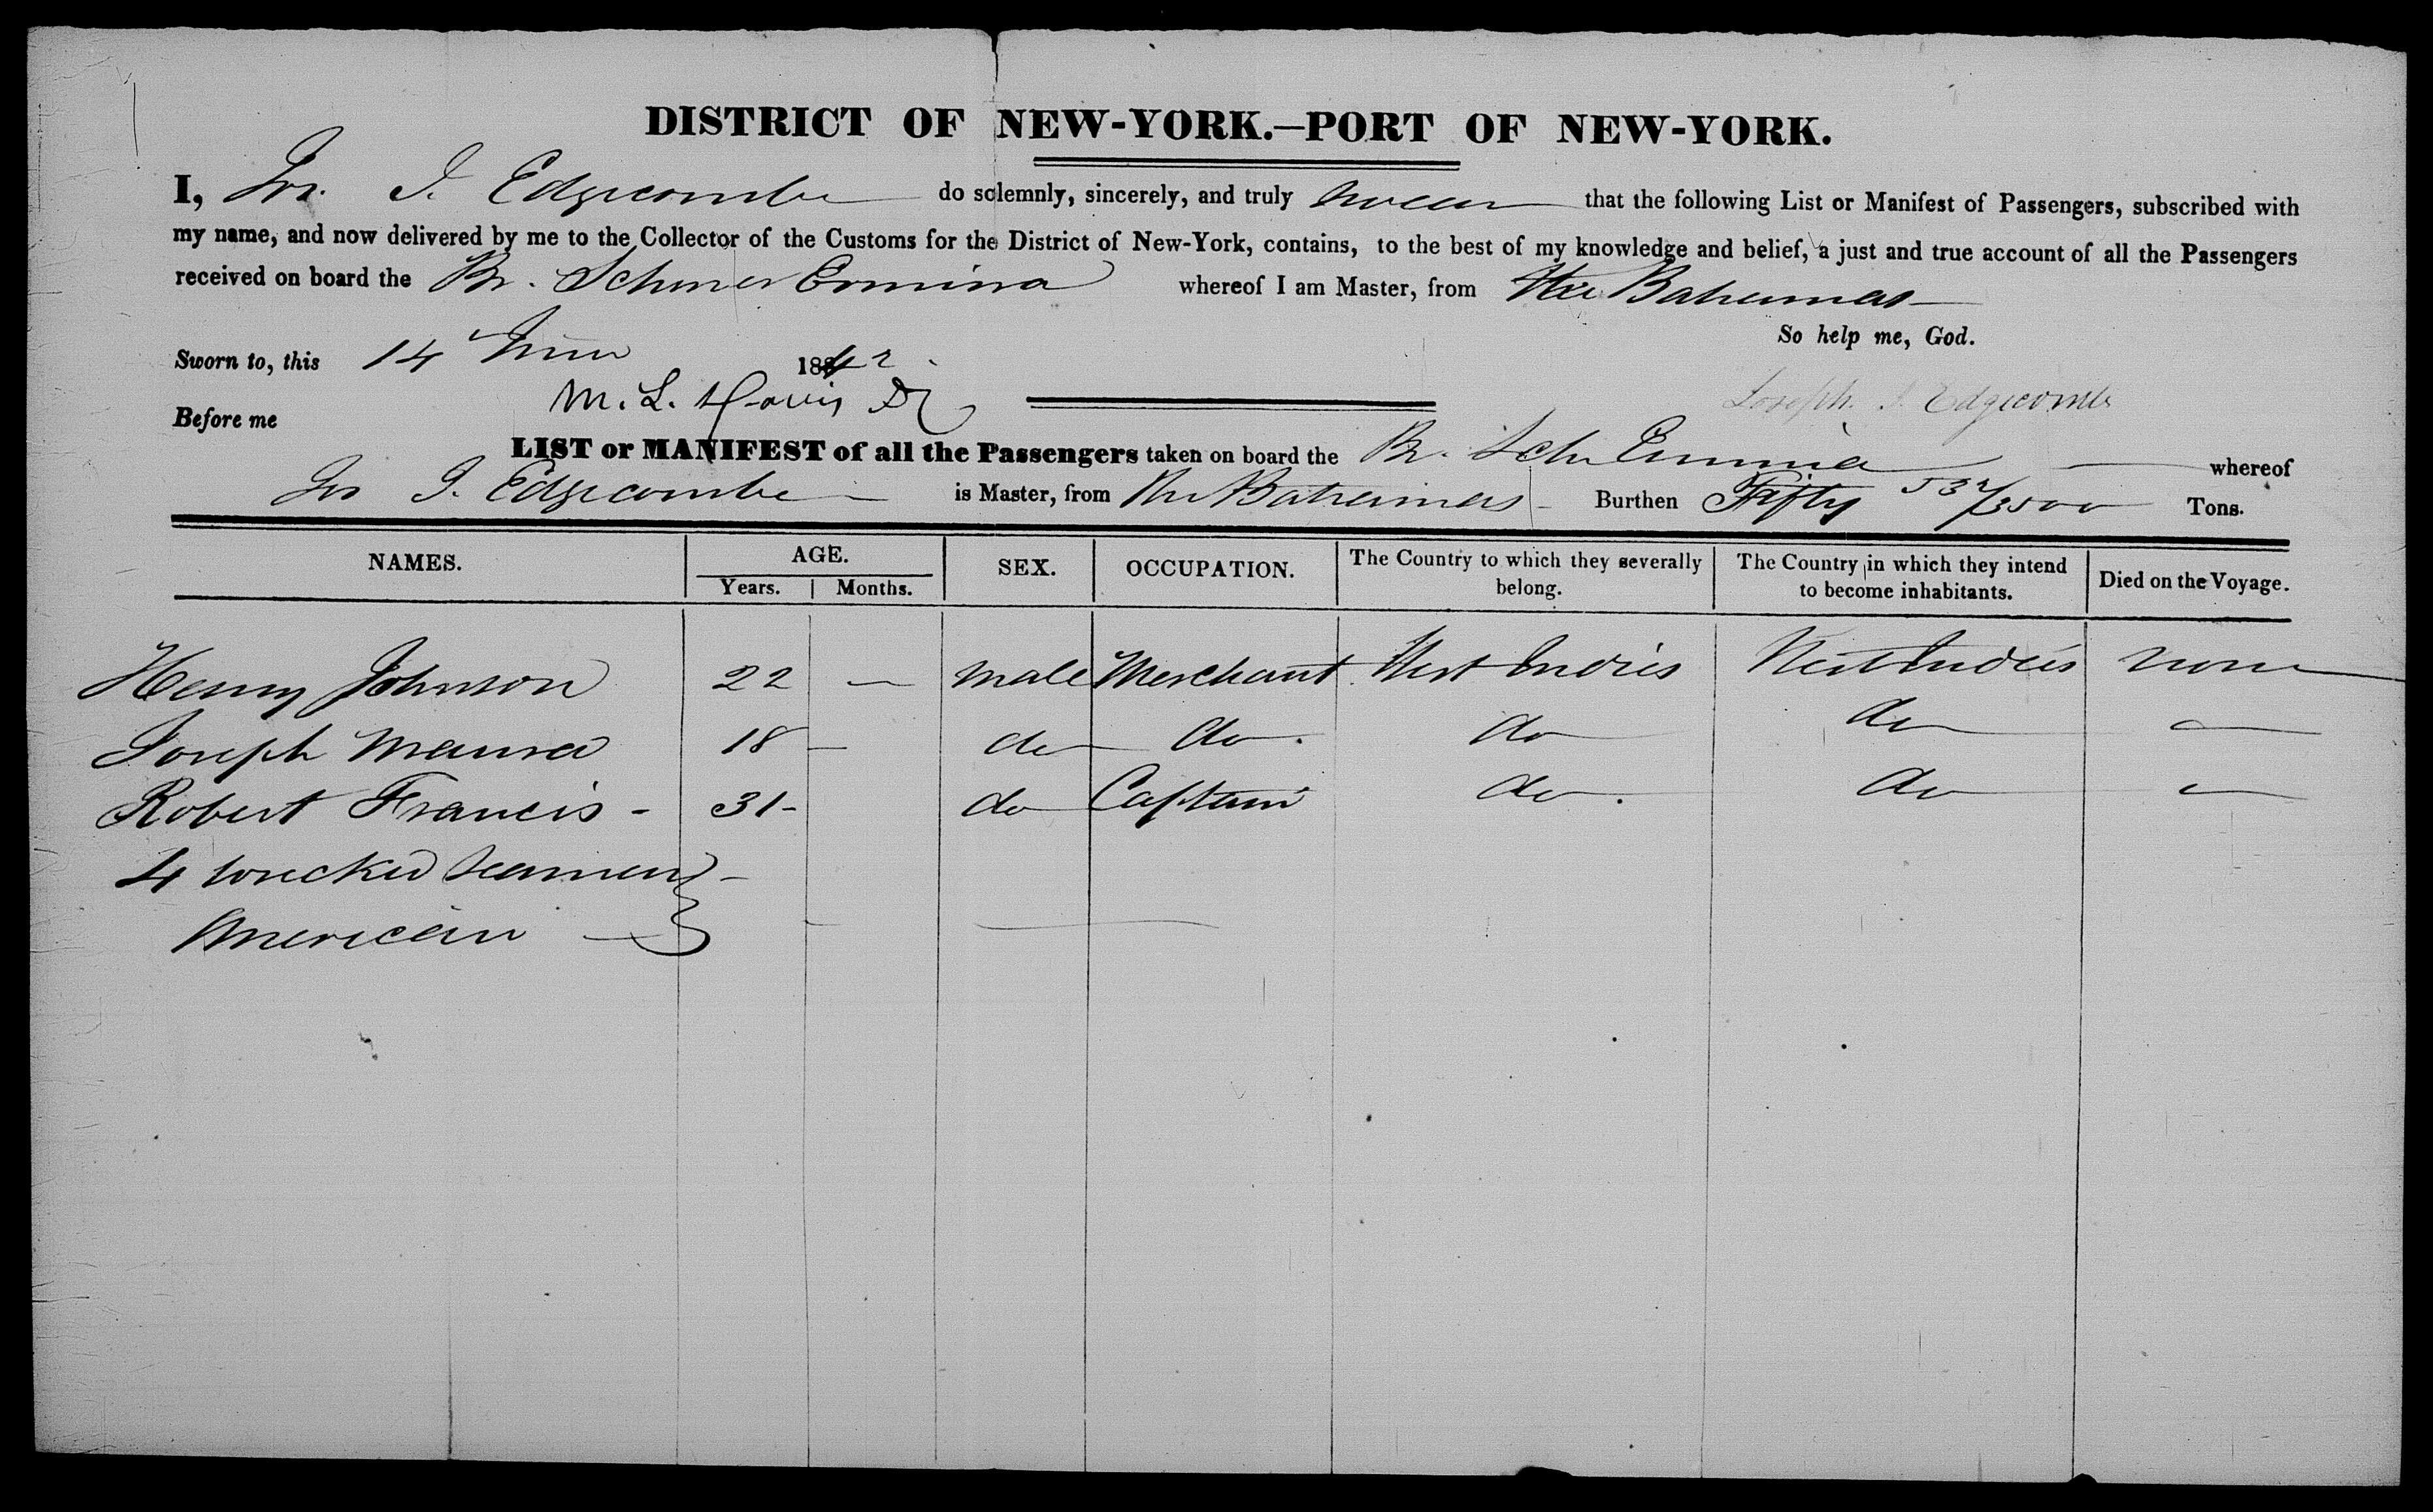 DISTRICT OF NEW-YORK.—PORT OF NEW-YORK.
I, Jos. J. Edgecombe do solemnly, sincerely, and truly swear that the following List or Manifest of Passengers, subscribed with
my name, and now delivered by me to the Collector of the Customs for the District of New-York, contains, to the best of my knowledge and belief, a just and true account of all the Passengers
received on board the Br. Schoner whereof I am Master, from the Bahamas
So help me, God.
Sworn to, this 14 June 1842
Joseph. J. Edgecombe
Before me M. L. Davis
LIST or MANIFEST of all the Passengers taken on board the Br. Schr whereof
Jos J. Edgecombe is Master, from the Bahamas Burthen Fifty Tons.
NAMES. AGE. SEX. OCCUPATION. The Country to which they severally belong. The Country in which they intend to become inhabitants. Died on the Voyage.
Years. Months.
Henry Johnson 22 — male Merchant West Indies West Indies none
Joseph Maura 18 — do do. do do —
Robert Francis - 31 - do Captain do. do —
4 wrecked seamen -
American —